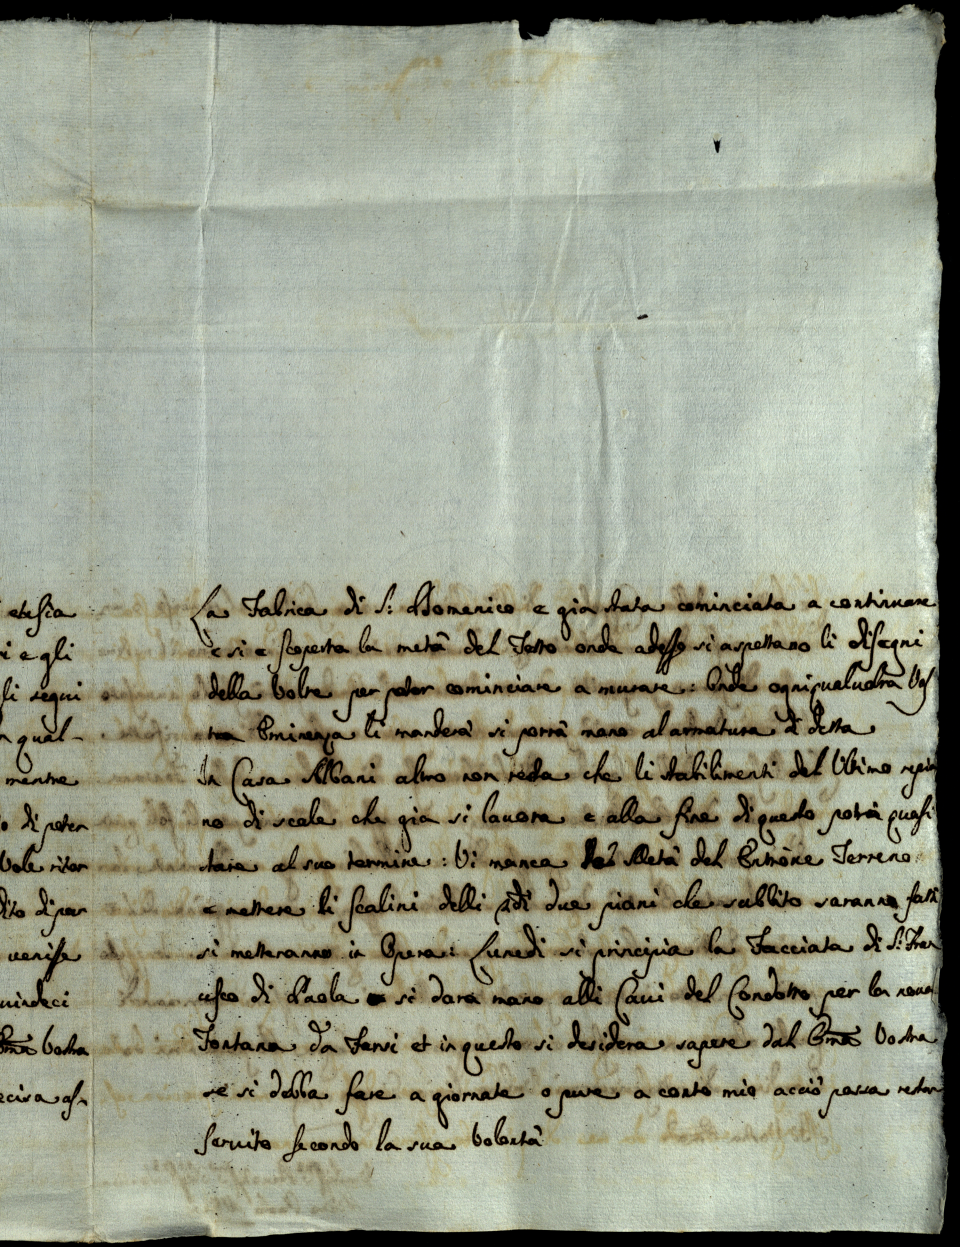 etesia
i e gli
li segui
n qual-
mentre
o di poter
Vole ritor
dito di per
venisse
uindeci
Emza Vostra
ecisa as-
La Fabrica di S: Domenico e gia stata cominciata a continuare
e si e scoperta la metà del Tetto onde adesso si aspettano li disegni
della Volte per poter cominciare a murare: Onde ogniqualvolta Vos
tra Eminenza li manderà si porrà mano al armatura di detta
In Casa Albani altro non resta che li stabilimenti del Ultimo repia
no di scale che gia si lavora e alla fine di questo potrà quasi
stare al suo termine: Vi manca Metà del Entrone Terreno
e mettere li scalini delli due piani che subbito saranno fatti
si metteranno in Opera: Lunedi si principia la Facciata di S: Fran
cesco di Paola e si darà mano alli Cavi del Condotto per la nova
Fontana da Farsi et in questo si desidera sapere dal Emza Vostra
se si debba fare a giornate o pure a conto mio acciò possa restar
servito secondo la sua Volontà